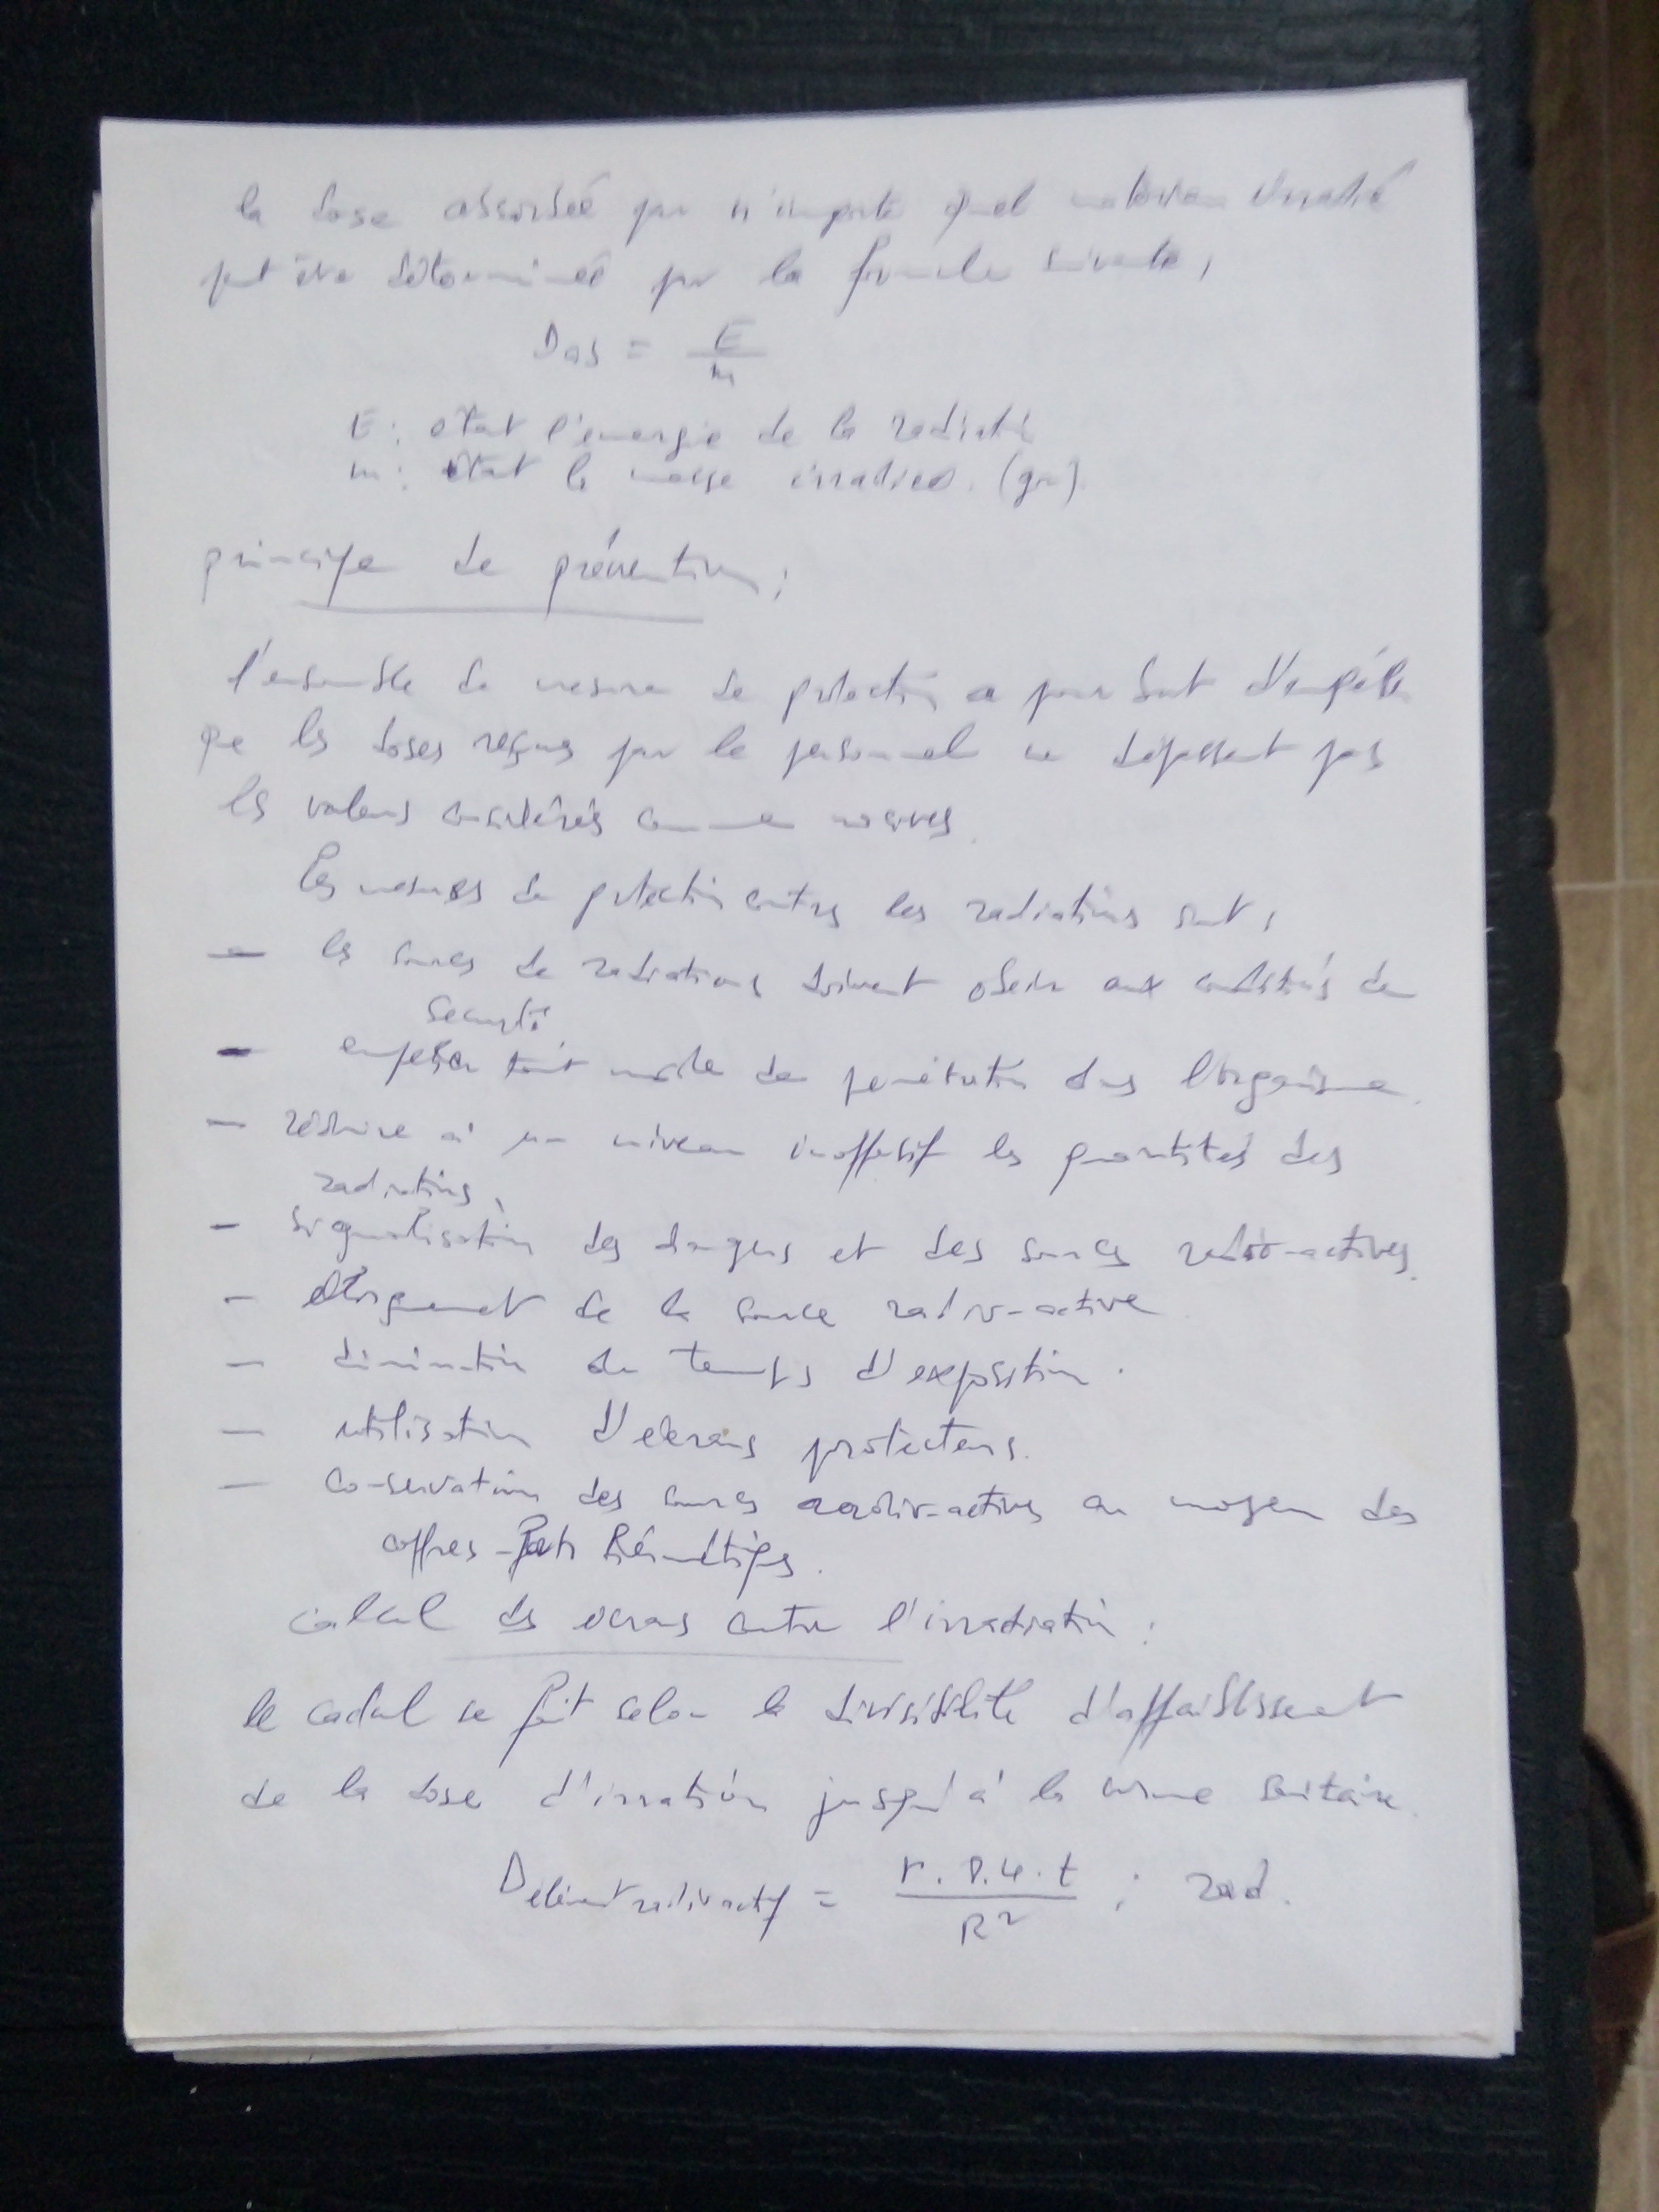 la dose absorbée par n'importe quel matériau irradié
peut être déterminée par la formule suivante,
Dabs = E / m
E : étant l'énergie de la radiati
m : étant la masse irradiée. (gr).
principe de prévention ;
l'ensemble de mesure de protection a pour but d'empêcher
que les doses reçues par le personnel ne dépassent pas
les valeurs considérés comme nocives.
Les mesures de protection contres les radiations sont ,
— les sources de radiations doivent obeir aux conditions de
securité
— empêcher tout mode de pénétration dans l'organisme.
— réduire à un niveau inoffensif les quantités des
radiations,
— signalisation des dangers et des sources radio-actives.
— éloignement de la source radio-active
— diminution du temps d'exposition.
— utilisation d'ecrans protecteurs.
— conservation des sources radio-actives au moyen des
coffres-forts hérmétiques.
calcul des écrans contre l'irradiation :
le calcul se fait selon la divisibilité d'affaiblissement
de la dose d'irration jusqu'à la norme sanitaire.
D élément radioactif = r . 8.4 . t / R² ; rad.